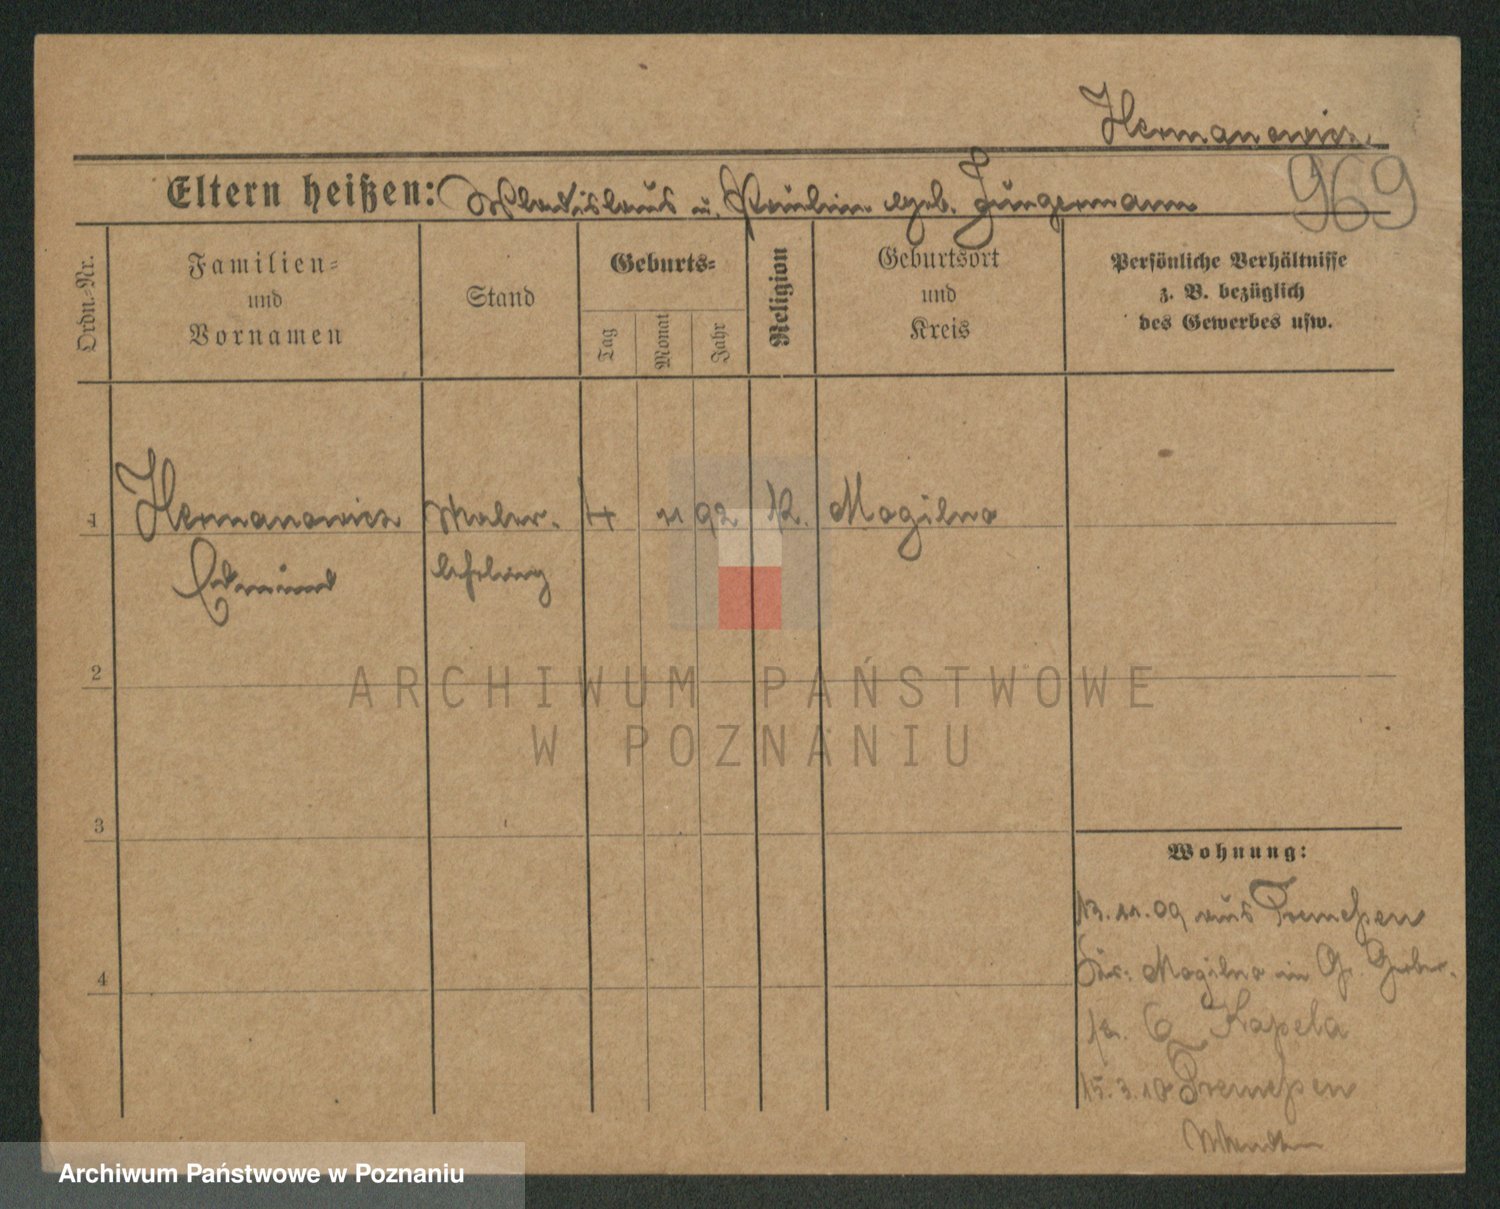 Hermanowicz
969
Eltern heißen: Wladislaus u. Paulin geb. Jungermann
Ordn.-Nr.
Familien-
und
Vornamen
Stand
Geburts-
Tag
Monat
Jahr
Religion
Geburtsort
und
Kreis
Persönliche Verhältnisse
z. B. bezüglich
des Gewerbes usw.
1 Hermanowicz Maler- 4 11 92 K. Mogilno
Edmund lehrling
2
ARCHIWUM PAŃSTWOWE
W POZNANIU
3
Wohnung:
13.11.09 aus Tremessen
Mogilno
4
Kapela
15.3.10 Tremessen
Archiwum Państwowe w Poznaniu